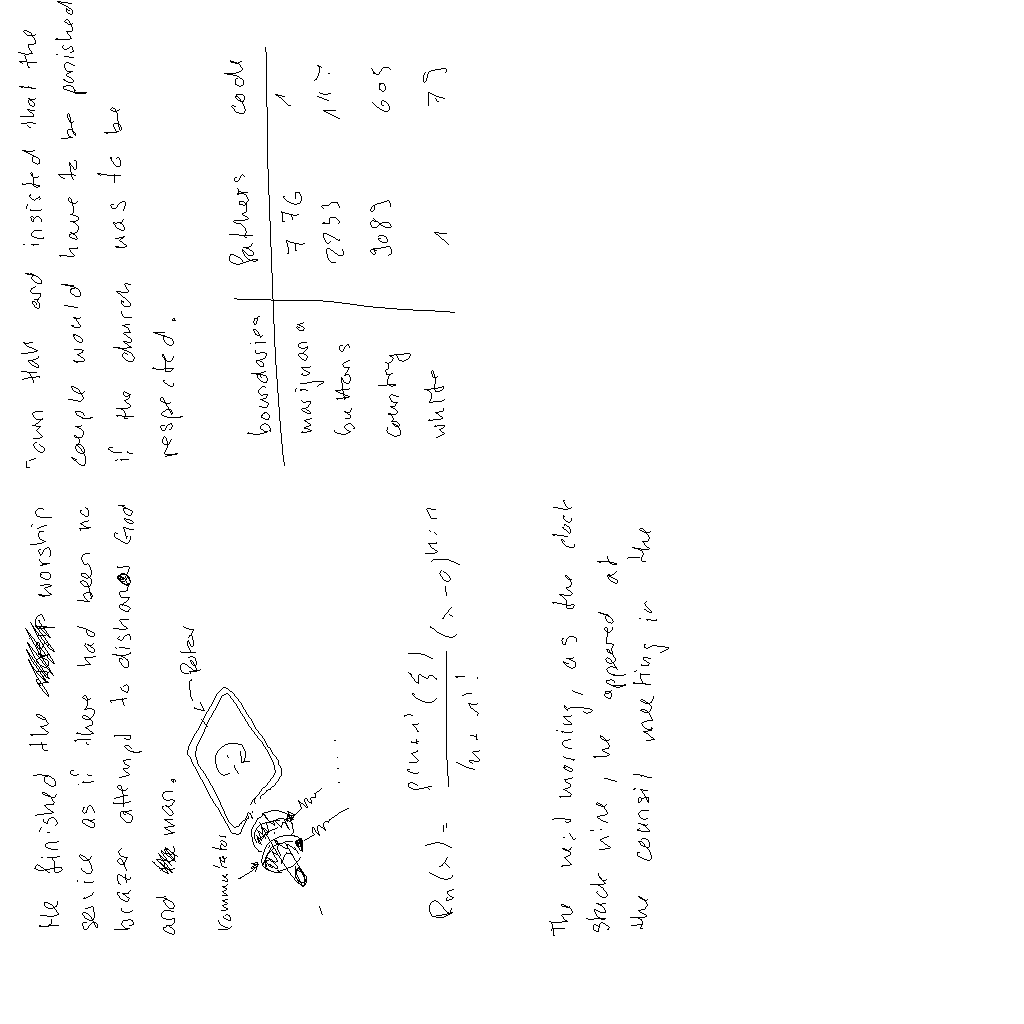 He finished the worship
service as if there had been no
brazen attempt to dishonor God
and man.
Rotor
Kommutator
Rn(x) =
The next morning, as the clock
stuck nine, he appeared at
the counsil meeting in the
Town Hall and insisted that the
couple would have to be punished
if the church was to be
respected.
boundaries Fathers code
marijuana 776 1
buttons
country 9089 605
white 1 79